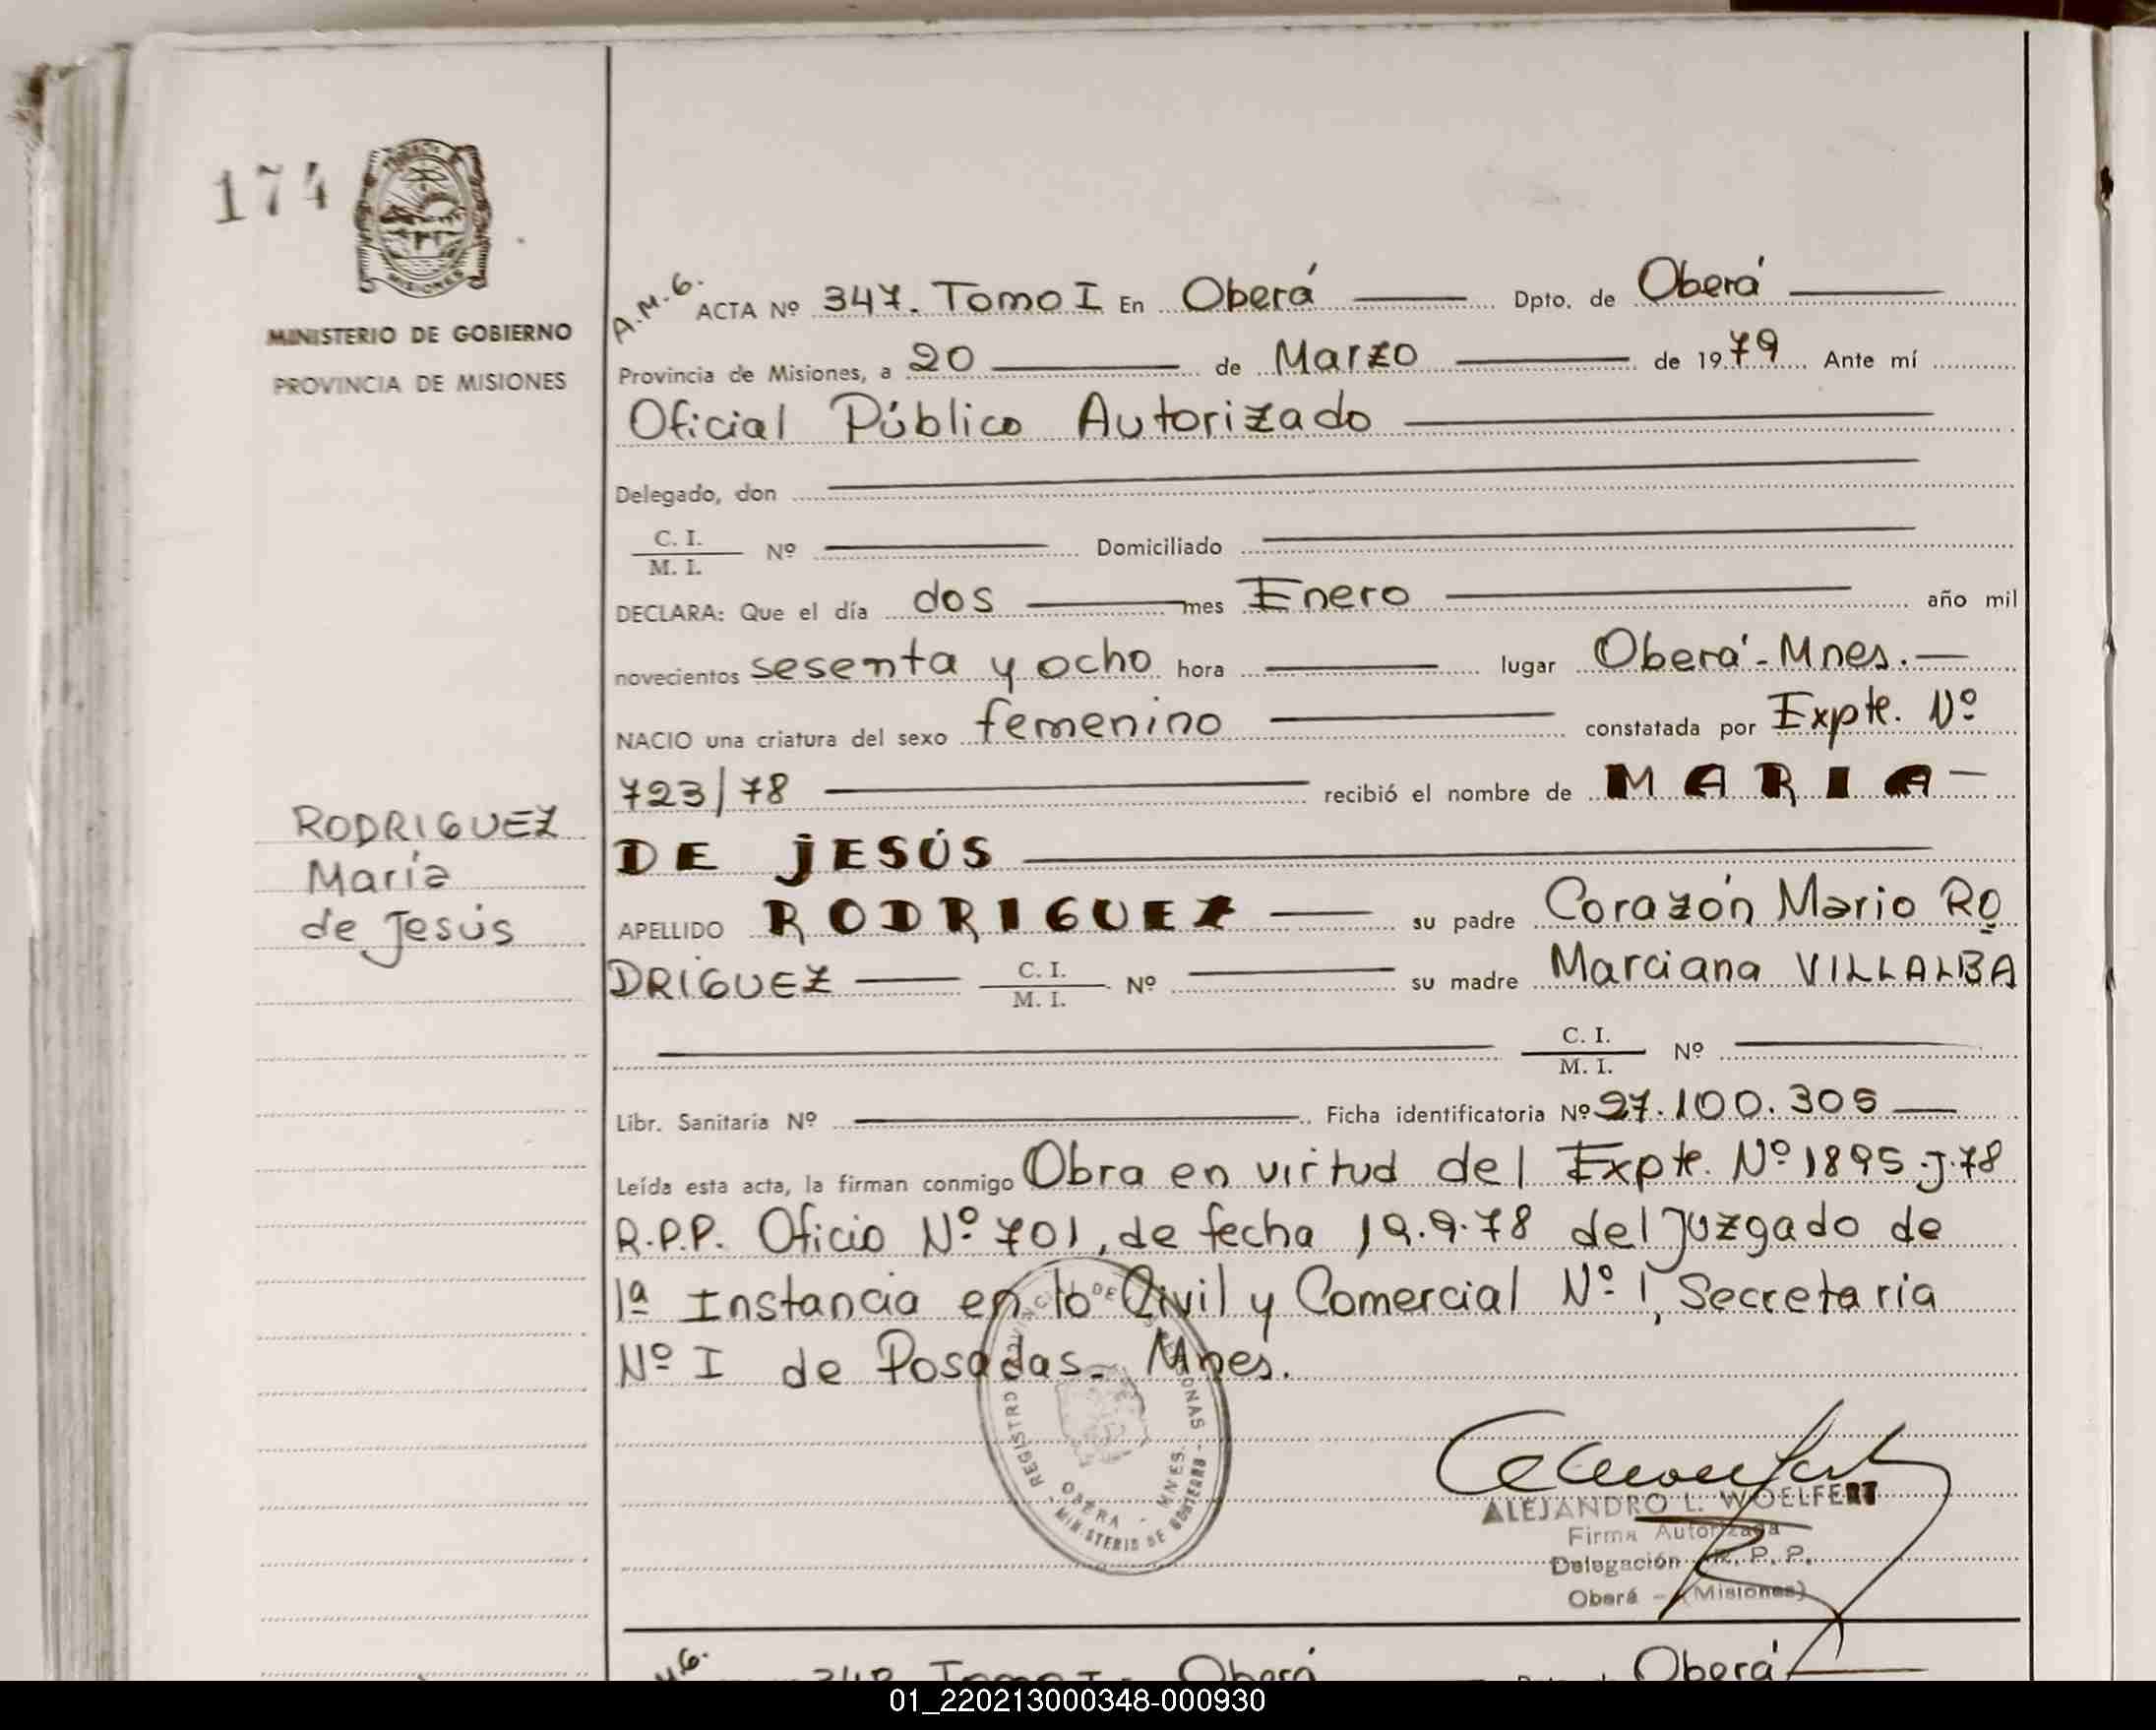 174
MISIONES
MINISTERIO DE GOBIERNO
PROVINCIA DE MISIONES
RODRIGUEZ
María
de Jesús
A.M.G. ACTA Nº 347. Tomo I En Oberá Dpto. de Oberá
Provincia de Misiones, a 20 de Marzo de 1979 Ante mí
Oficial Público Autorizado
Delegado, don
C. I.
M. I. Nº Domiciliado
DECLARA: Que el día dos mes Enero año mil
novecientos sesenta y ocho hora lugar Oberá-Mnes.
NACIO una criatura del sexo femenino constatada por Expte. Nº
723/78 recibió el nombre de MARIA
DE JESÚS
APELLIDO RODRIGUEZ su padre Corazón Mario RO
DRIGUEZ C. I. M. I. Nº su madre Marciana VILLALBA
C. I. M. I. Nº
Libr. Sanitaria Nº Ficha identificatoria Nº 27.100.305
Leída esta acta, la firman conmigo Obra en virtud del Expte. Nº 1895.J.78
R.P.P. Oficio Nº 701, de fecha 19.9.78 del Juzgado de
1ª Instancia en lo Civil y Comercial Nº 1, Secretaria
Nº I de Posadas. Mnes.
REGISTRO PROVINCIAL DE PERSONAS
OBERA - MNES.
MINISTERIO DE GOBIERNO
ALEJANDRO L. WOELFERT
Firma Autorizada
Delegación R. P. P.
Oberá - (Misiones)
Tomo I Oberá Oberá
01_220213000348-000930